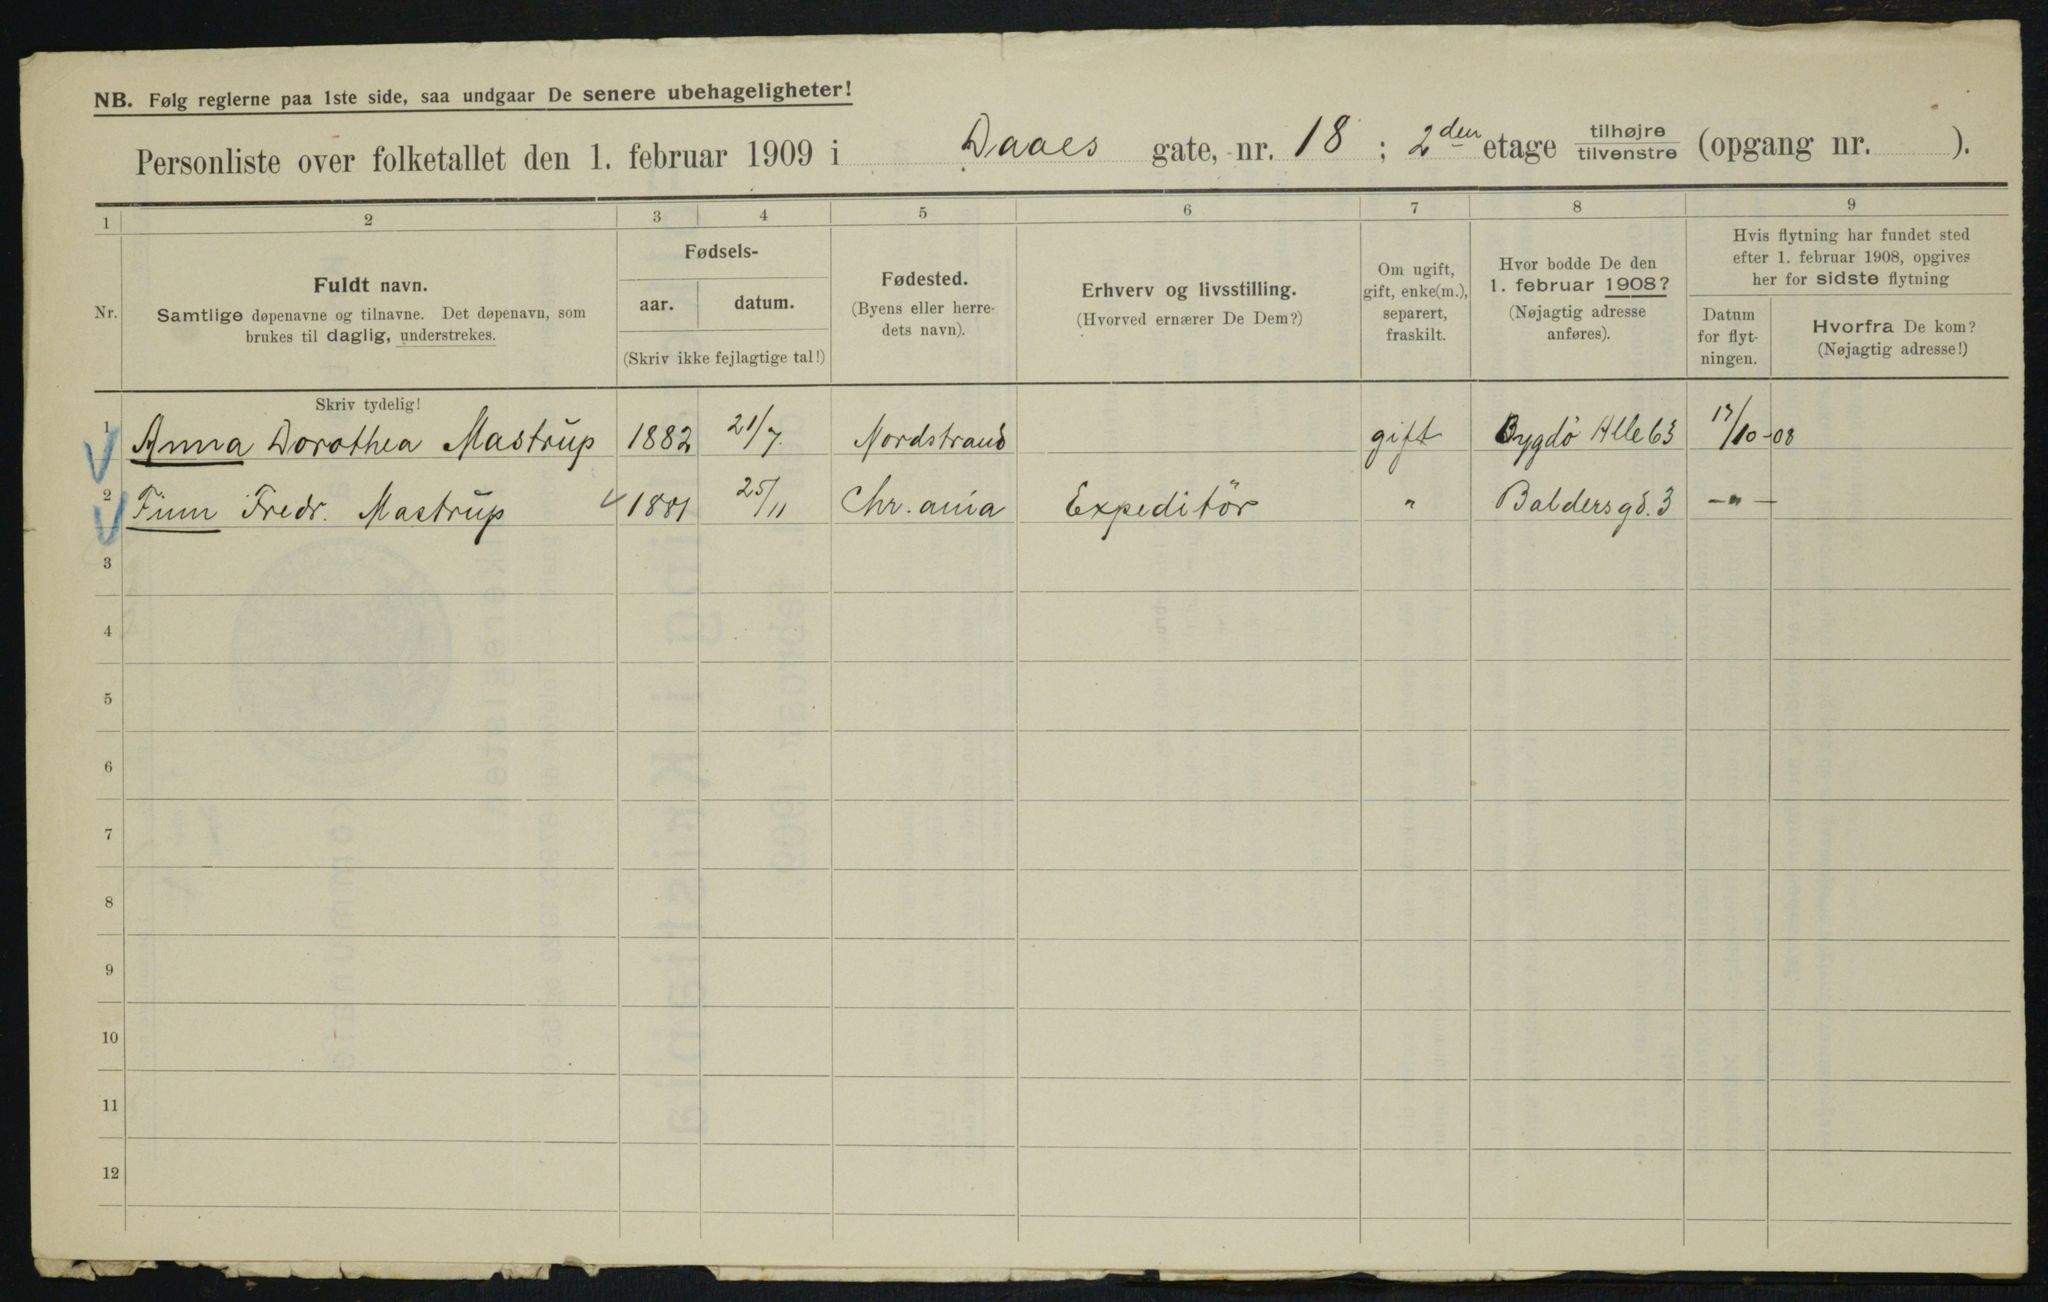 NB. Følg reglerne paa 1ste side, saa undgaar De senere ubehageligheter!
Personliste over folketallet den 1. februar 1909 i Daaes gate, nr. 18 ; 2den etage tilhøjre tilvenstre (opgang nr. ).
1 2 3 4 5 6 7 8 9
Nr.
Fuldt navn.
Samtlige døpenavne og tilnavne. Det døpenavn, som
brukes til daglig, understrekes.
Fødsels-
aar. datum.
(Skriv ikke fejlagtige tal!)
Fødested.
(Byens eller herre-
dets navn).
Erhverv og livsstilling.
(Hvorved ernærer De Dem?)
Om ugift,
gift, enke(m.),
separert,
fraskilt.
Hvor bodde De den
1. februar 1908?
(Nøjagtig adresse
anføres).
Hvis flytning har fundet sted
efter 1. februar 1908, opgives
her for sidste flytning
Datum
for flyt-
ningen.
Hvorfra De kom?
(Nøjagtig adresse!)
Skriv tydelig!
1 Anna Dorothea Mastrup 1882 21/7. Nordstrand gift Bygdö Alle 63 17/10-08
2 Finn Fredr. Mastrup 1881 25/11 Chr.ania Expeditör " Baldersgd. 3 -"-
3
4
5
6
7
8
9
10
11
12